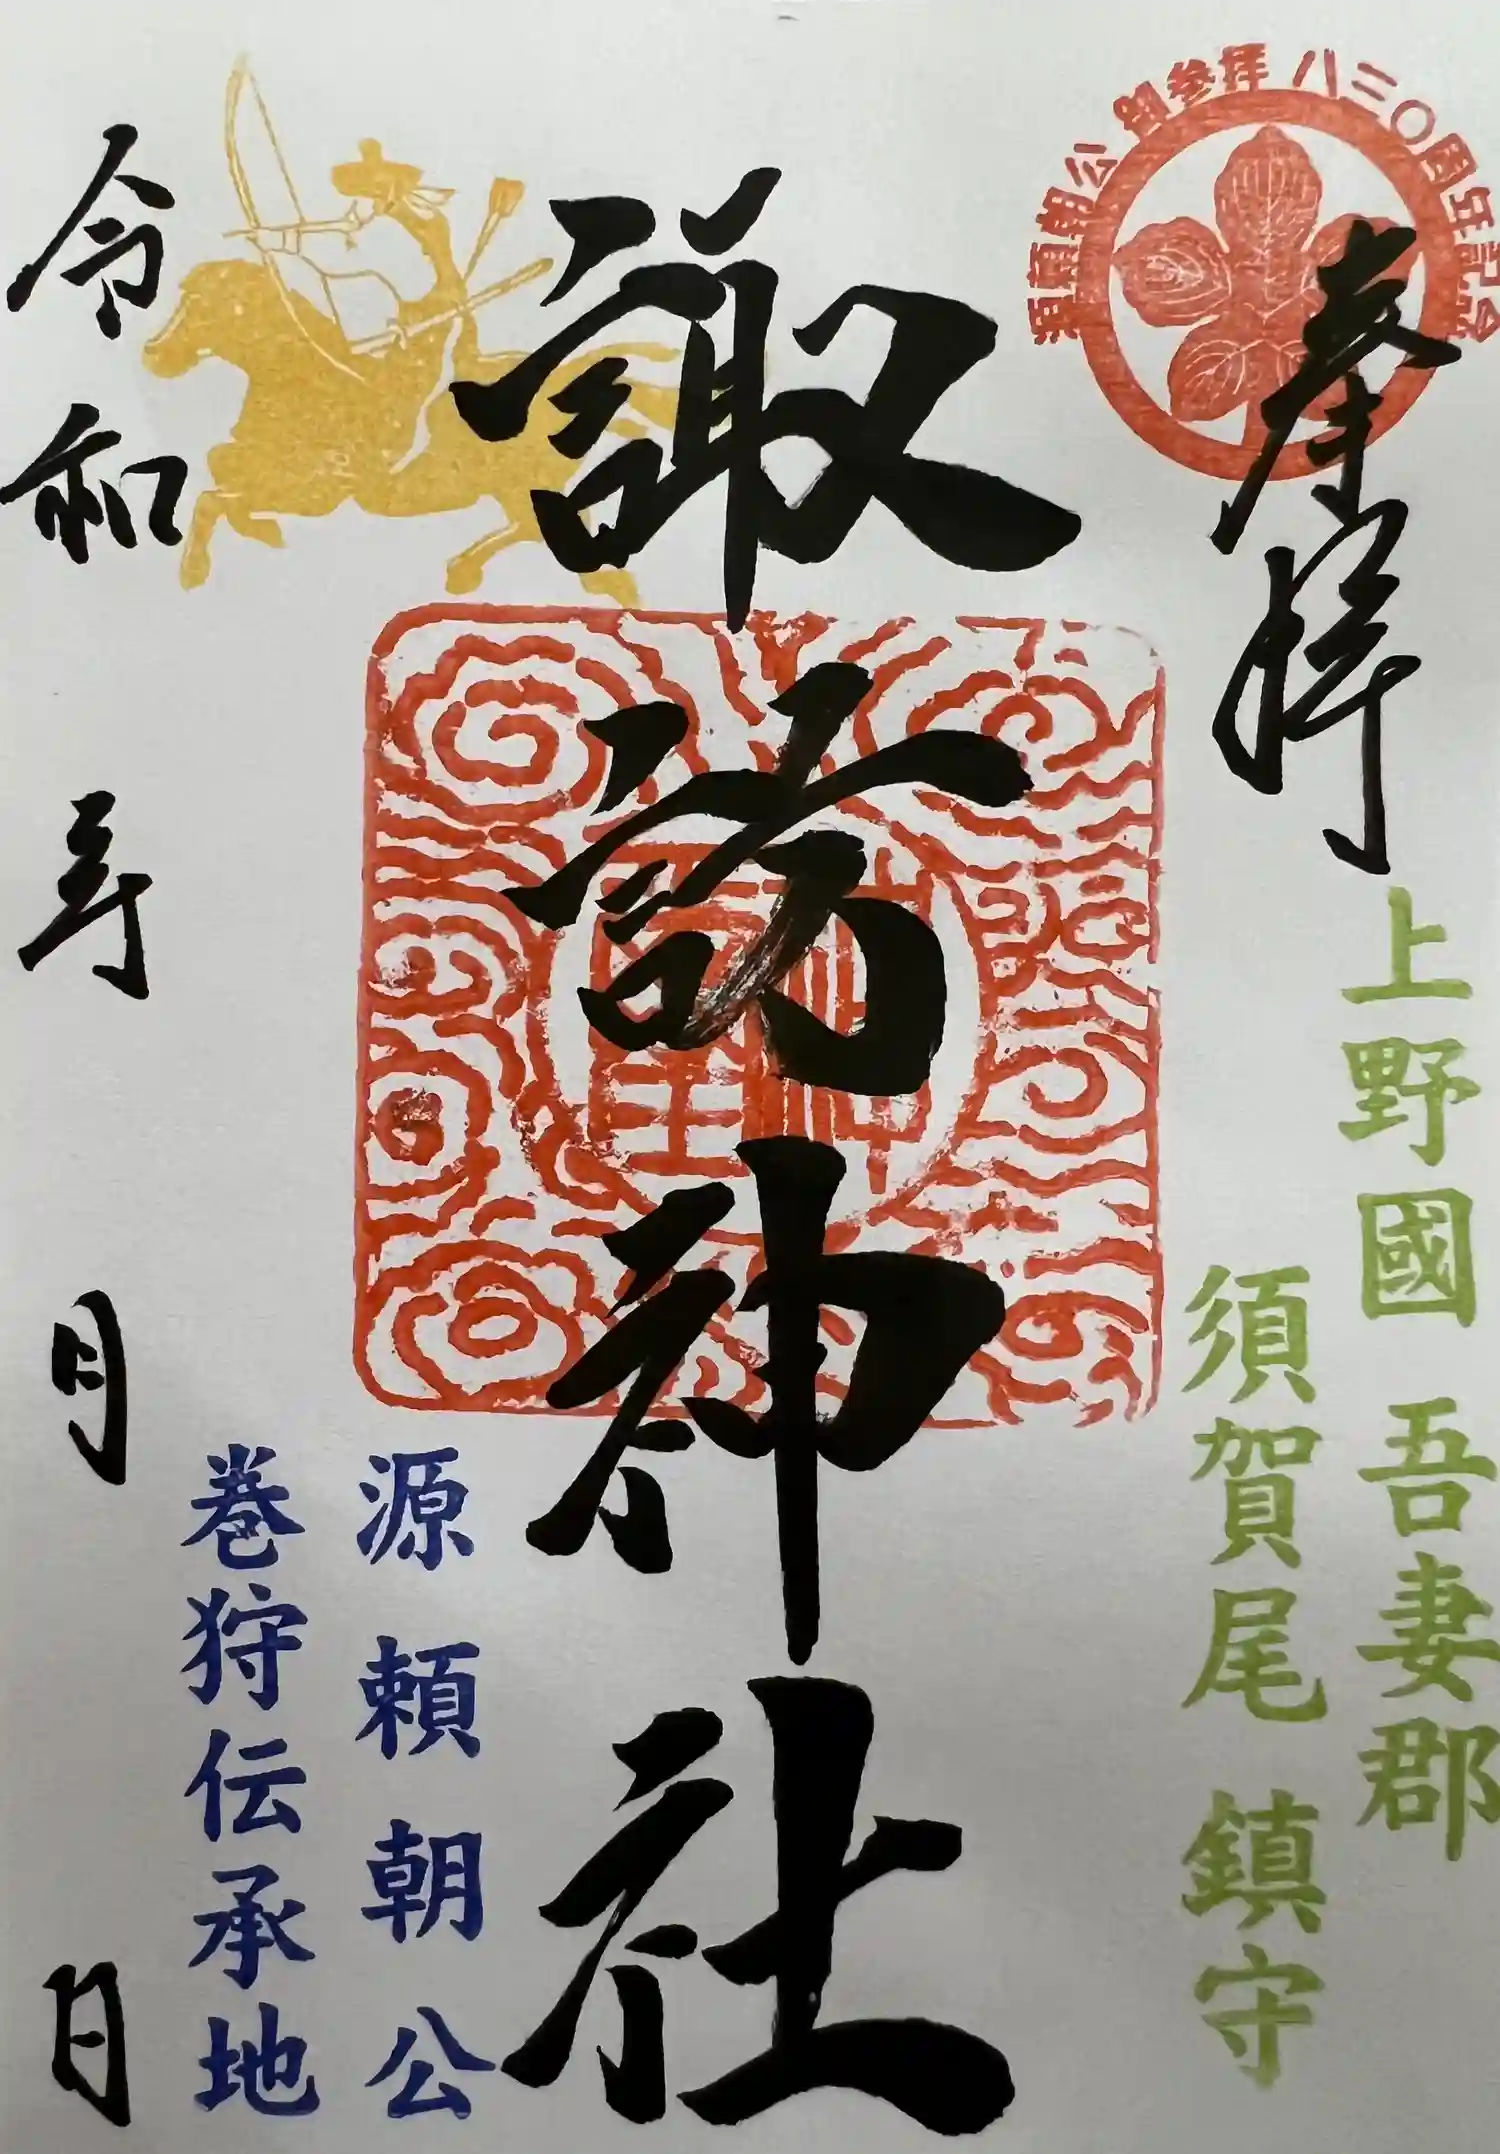 奉拝
源頼朝公 御参拝 八三〇周年記念
上野國 吾妻郡
須賀尾 鎮守
諏訪神社
源頼朝公
巻狩伝承地
令和 年 月 日